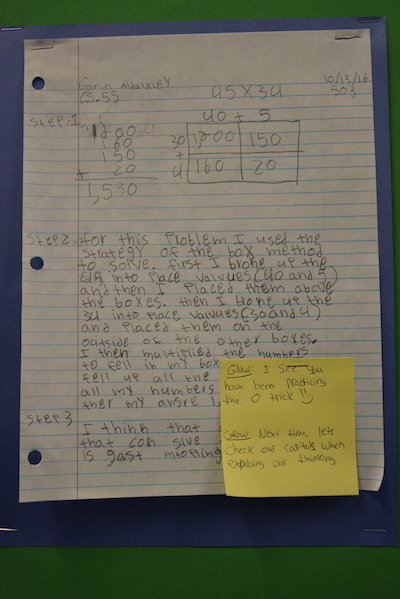 45 x 34
10/13/16
503
Step 1
40 + 5
1,200
160
150
+ 20
1,530
30
+
4
1,200
150
160
20
Step 2 for this problem I used the
strategy of the box method
to solve. first I broke up the
into place valvues (40 and 5)
and then I placed them above
the boxes. then I broke up the
34 into place valvues (30 and 4)
and placed them on the
outside of the other boxes.
I then multiplied the numbers
to fell in my box
fell up all the
all my numbers
ther my
Step 3
I think that
that
is gast
Glow: I see you
have been practicing
the 0 trick!!
Grow: Next time, lets
check our capitals when
explaing our thinking.